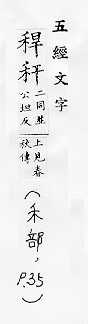 五經文字
稈秆
二同並
公坦反
上見春
秋傳
(禾部, P.35)